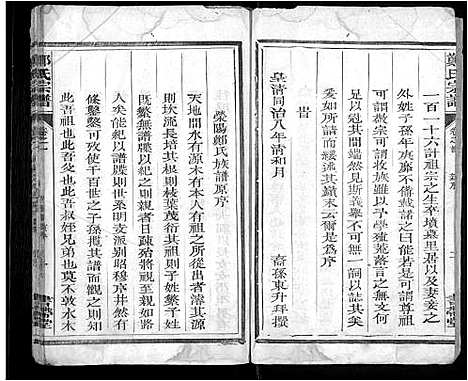 鄭氏宗譜
一百一十六計祖宗之生卒墳墓里居以及妻妾之
外姓子孫年庚爺爺名諱裁成一譜而可謂尊祖
可謂敬宗亦可謂收族雖以予學殖荒蕪之無文何
足以冠其間竊然見斯義舉不可無一詞以誌其美
爰如所請而緩述其顛末云爾是為序
皇清同治八年清和月 嵩孫東升拜撰
昔
滎陽鄭氏族譜原序
天地間水有源木有本人有祖之所從出者濬其源
則坎流長培其根則枝葉茂衍其祖則子姓繁子姓
既繁無譜牒以紀之則時異者日疎殆將視至親如路
人矣能紀以譜牒則世系明支派別昭穆序井然有
條繫繫可攷使千百世之子孫撥其譜而觀之則曰
此吾祖也此吾父也此吾叔姪兄弟也莫不敦水木
鄭氏宗譜
卷之一
書帶堂